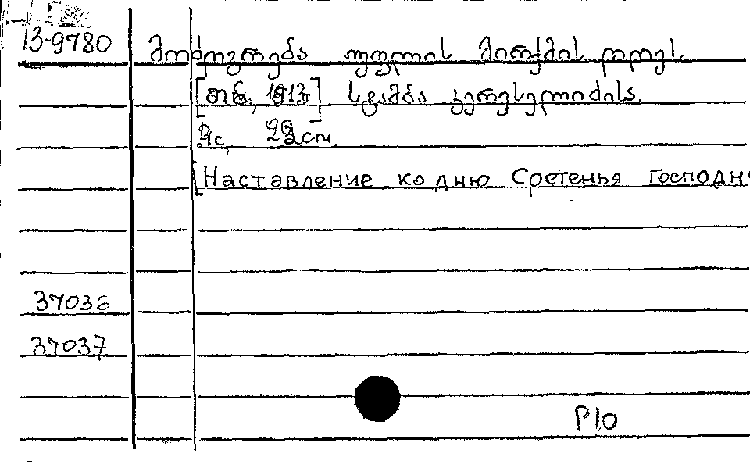 13-9780 მოძღვრება უფლის მირქმის დღეს.
[თბ, 1913] სტამბა კერესელიძისა.
4с, 22см
[Наставление ко дню Сретенья Господн
37036
37037
Р10